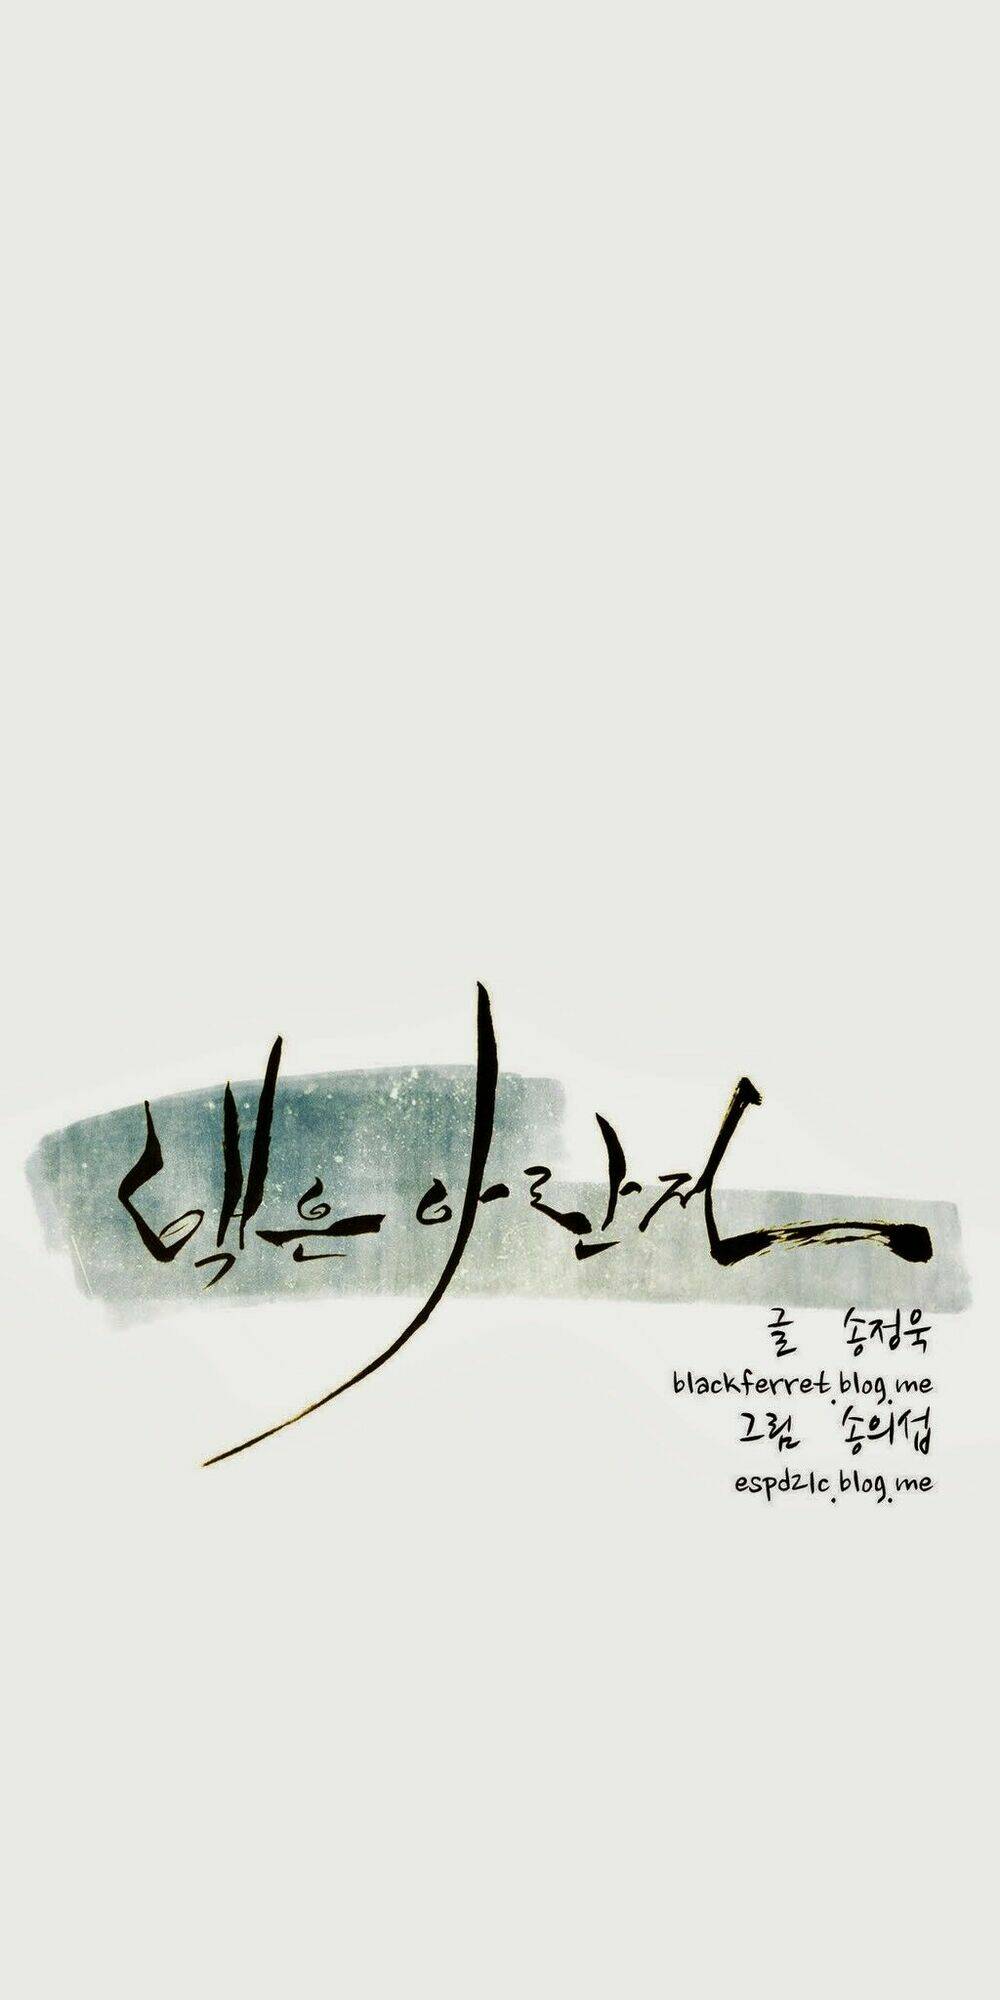 낵은 아란전
글 송정욱
blackferret.blog.me
그림 송의섭
espd21c.blog.me